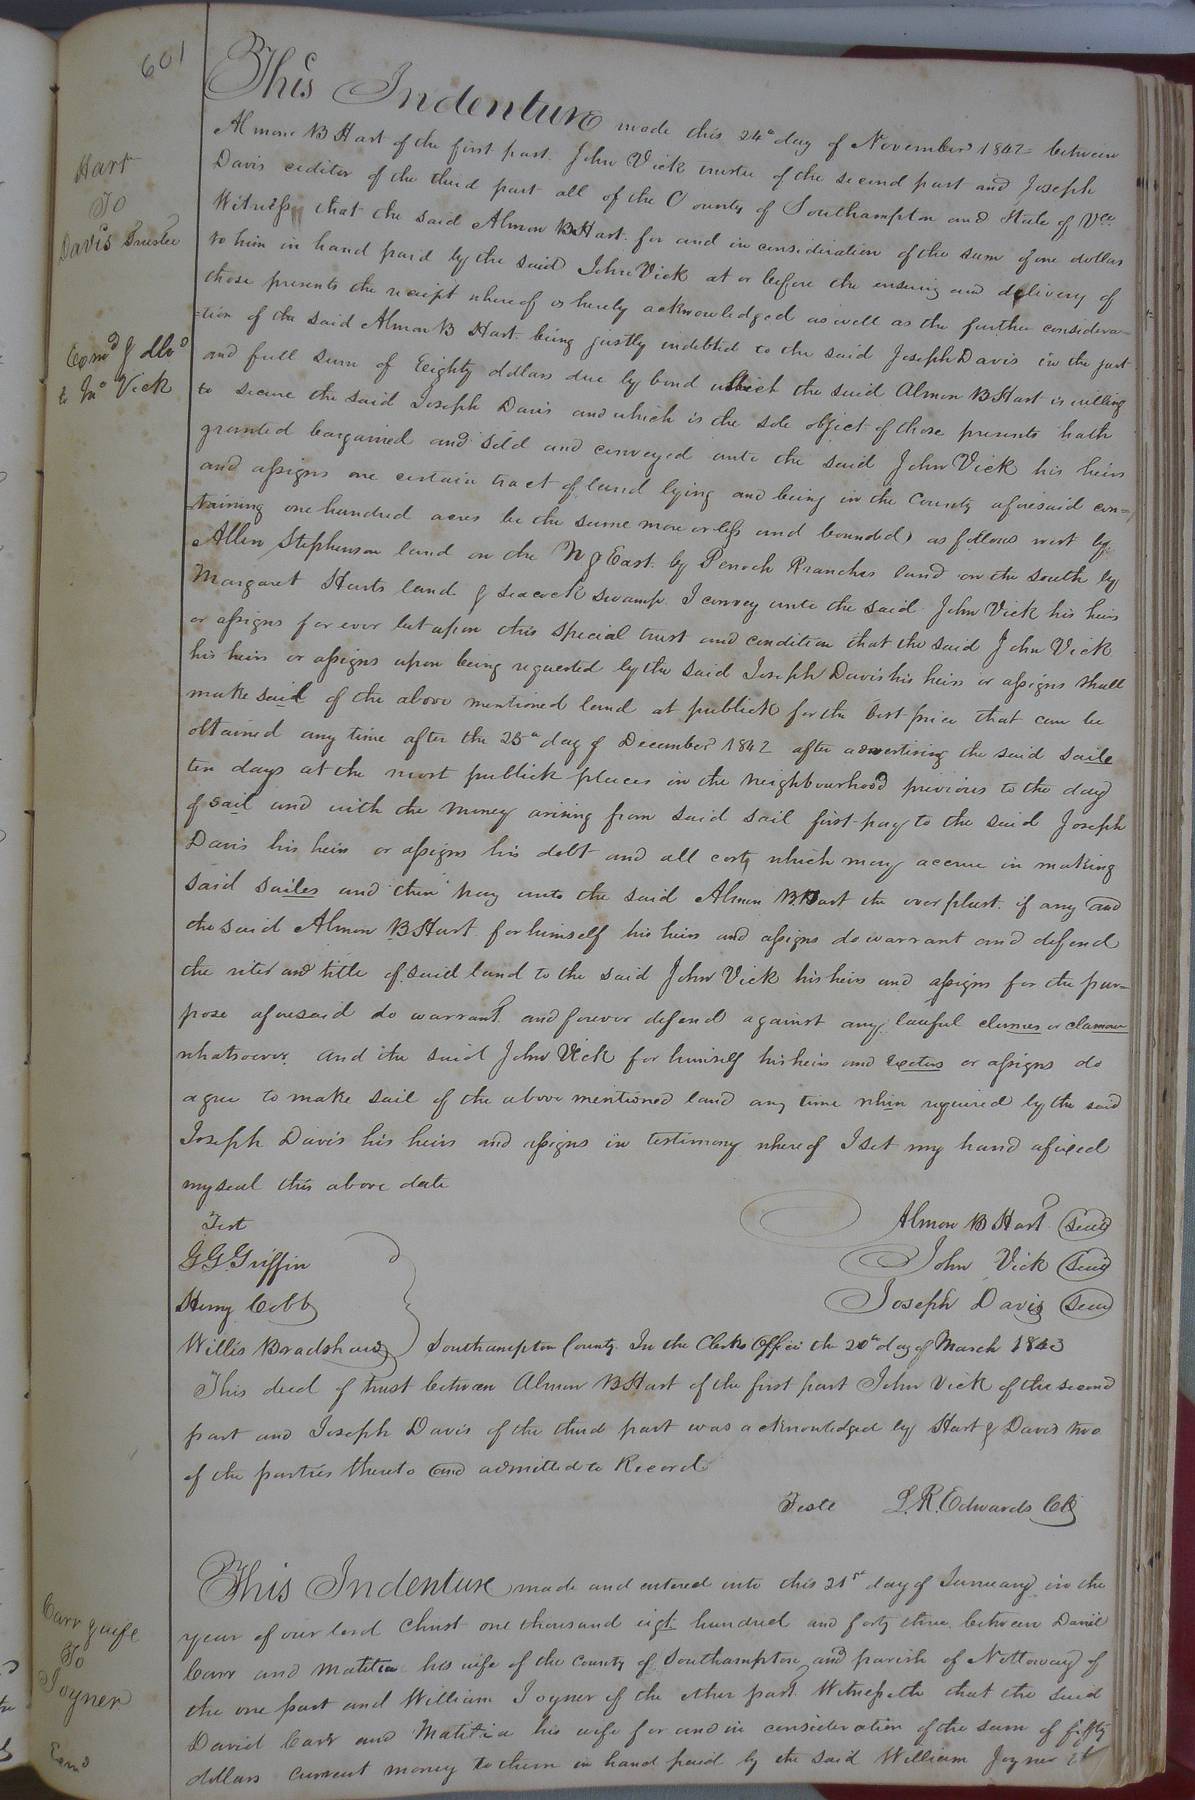 601
Hart
To
Davis Trustee
Exmd & dld
to Jno Vick
This Indenture made this 24th day of November 1842 between
Almon B Hart of the first part. John Vick trustee of the second part and Joseph
Davis creditor of the third part all of the County of Southampton and State of Va
Witnesseth that the said Almon B Hart for and in consideration of the sum of one dollar
to him in hand paid by the said John Vick at or before the ensuing and delivery of
these presents the receipt whereof is hereby acknowledged as well as the further considera=
=tion of the said Almon B Hart being justly indebted to the said Joseph Davis in the just
and full sum of Eighty dollars due by bond which the said Almon B Hart is willing
to secure the said Joseph Davis and which is the sole object of these presents hath
granted bargained and sold and conveyed unto the said John Vick his heirs
and assigns one certain tract of land lying and being in the County aforesaid con=
=taining one hundred acres be the same more or less and bounded as follows west by
Allen Stephenson land on the N & East by Branches land on the South by
Margaret Harts land & seacock swamp. I convey unto the said John Vick his heirs
or assigns for ever but upon this special trust and condition that the said John Vick
his heirs or assigns upon being requested by the said Joseph Davis his heirs or assigns shall
make sail of the above mentioned land at publick for the best price that can be
obtained any time after the 25th day of December 1842 after advertising the said saile
ten days at the most publick places in the neighbourhood previous to the day
of sail and with the money arising from said sail first pay to the said Joseph
Davis his heirs or assigns his debt and all costs which may accrue in making
said sailes and then pay unto the said Almon B Hart the overplust if any and
the said Almon B Hart for himself his heirs and assigns do warrant and defend
the rite and title of said land to the said John Vick his heirs and assigns for the pur=
pose aforesaid do warrant and forever defend against any lawful clames or clamour
whatsoever. and the said John Vick for himself his heirs and or assigns do
agree to make sail of the above mentioned land any time when required by the said
Joseph Davis his heirs and assigns in testimony whereof I set my hand afixed
my seal this above date
Test
Almon B Hart Seal
G G. Griffin
John Vick Seal
Henry Cobb
Joseph Davis Seal
Willis Bradshaw
Southampton County. In the Clerks Office the 20th day of March 1843
This deed of trust between Almon B Hart of the first part John Vick of the second
part and Joseph Davis of the third part was acknowledged by Hart & Davis two
of the parties thereto and admitted to Record
Teste L. R. Edwards Clk
Carr & wife
To
Joyner
Exmd
This Indenture made and entered into this 21st day of January in the
year of our lord Christ one thousand eigt hundred and forty three between David
Carr and Matitia his wife of the County of Southampton and parish of Nottoway of
the one part and William Joyner of the other part Witnesseth that the said
David Carr and Matitia his wife for and in consideration of the sum of fifty
dollars current money to them in hand paid by the said William Joyner at